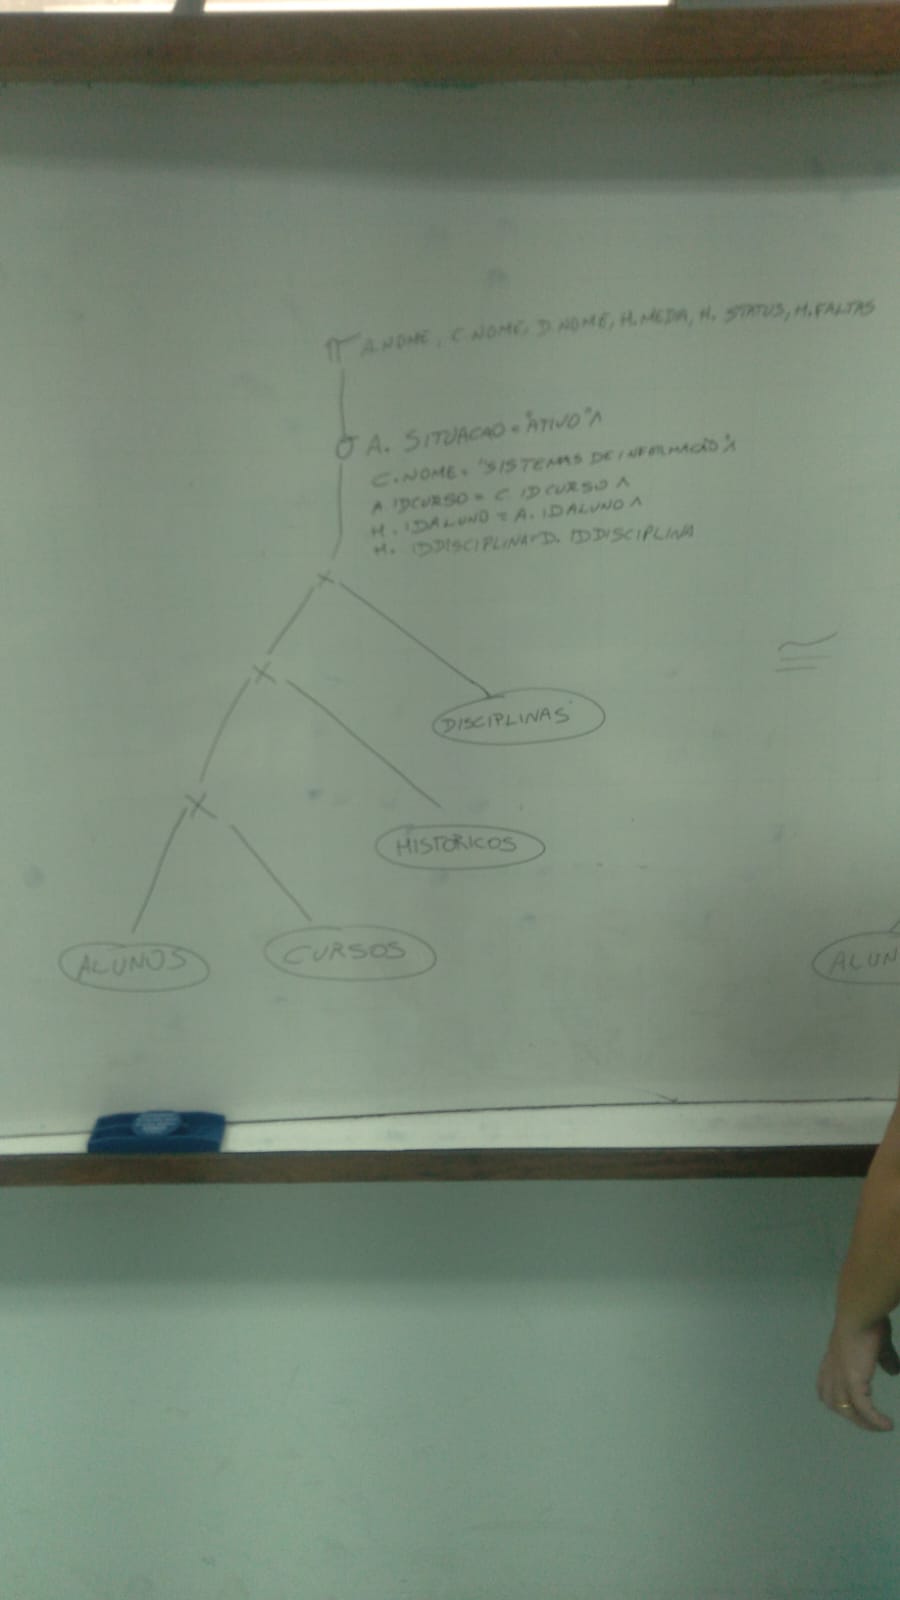 π A.NOME, C.NOME, D.NOME, H.MEDIA, H. STATUS, H.FALTAS
σ A. SITUACAO = "ATIVO" ∧
C.NOME = "SISTEMAS DE INFORMAÇÃO" ∧
A.IDCURSO = C.IDCURSO ∧
H. IDALUNO = A. IDALUNO ∧
H. IDDISCIPLINA = D. IDDISCIPLINA
X
≅
X
DISCIPLINAS
X
HISTORICOS
ALUNOS
CURSOS
ALUN